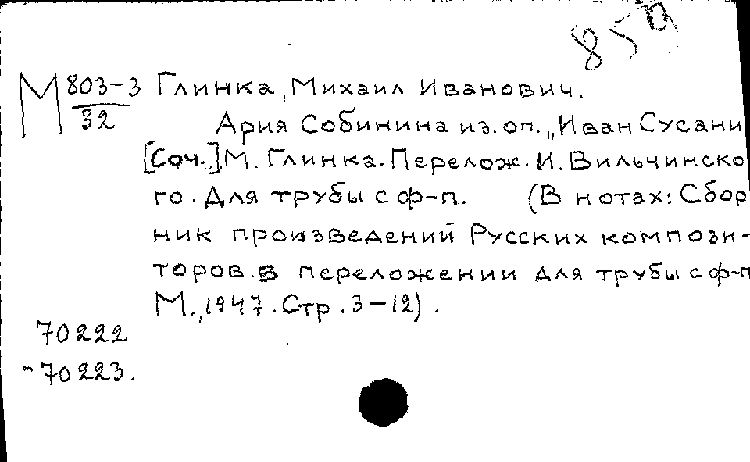 850
М 803-3/32 Глинка, Михаил Иванович.
Ария Собинина из. оп. „Иван Сусани
[Соч.] М. Глинка. Перелож. И. Вильчинско
го. Для трубы с ф-п. (В нотах: Сбор
ник произведений Русских компози-
торов в переложении для трубы с ф-п
М., 1947. Стр. 3-12).
70222
-70223.